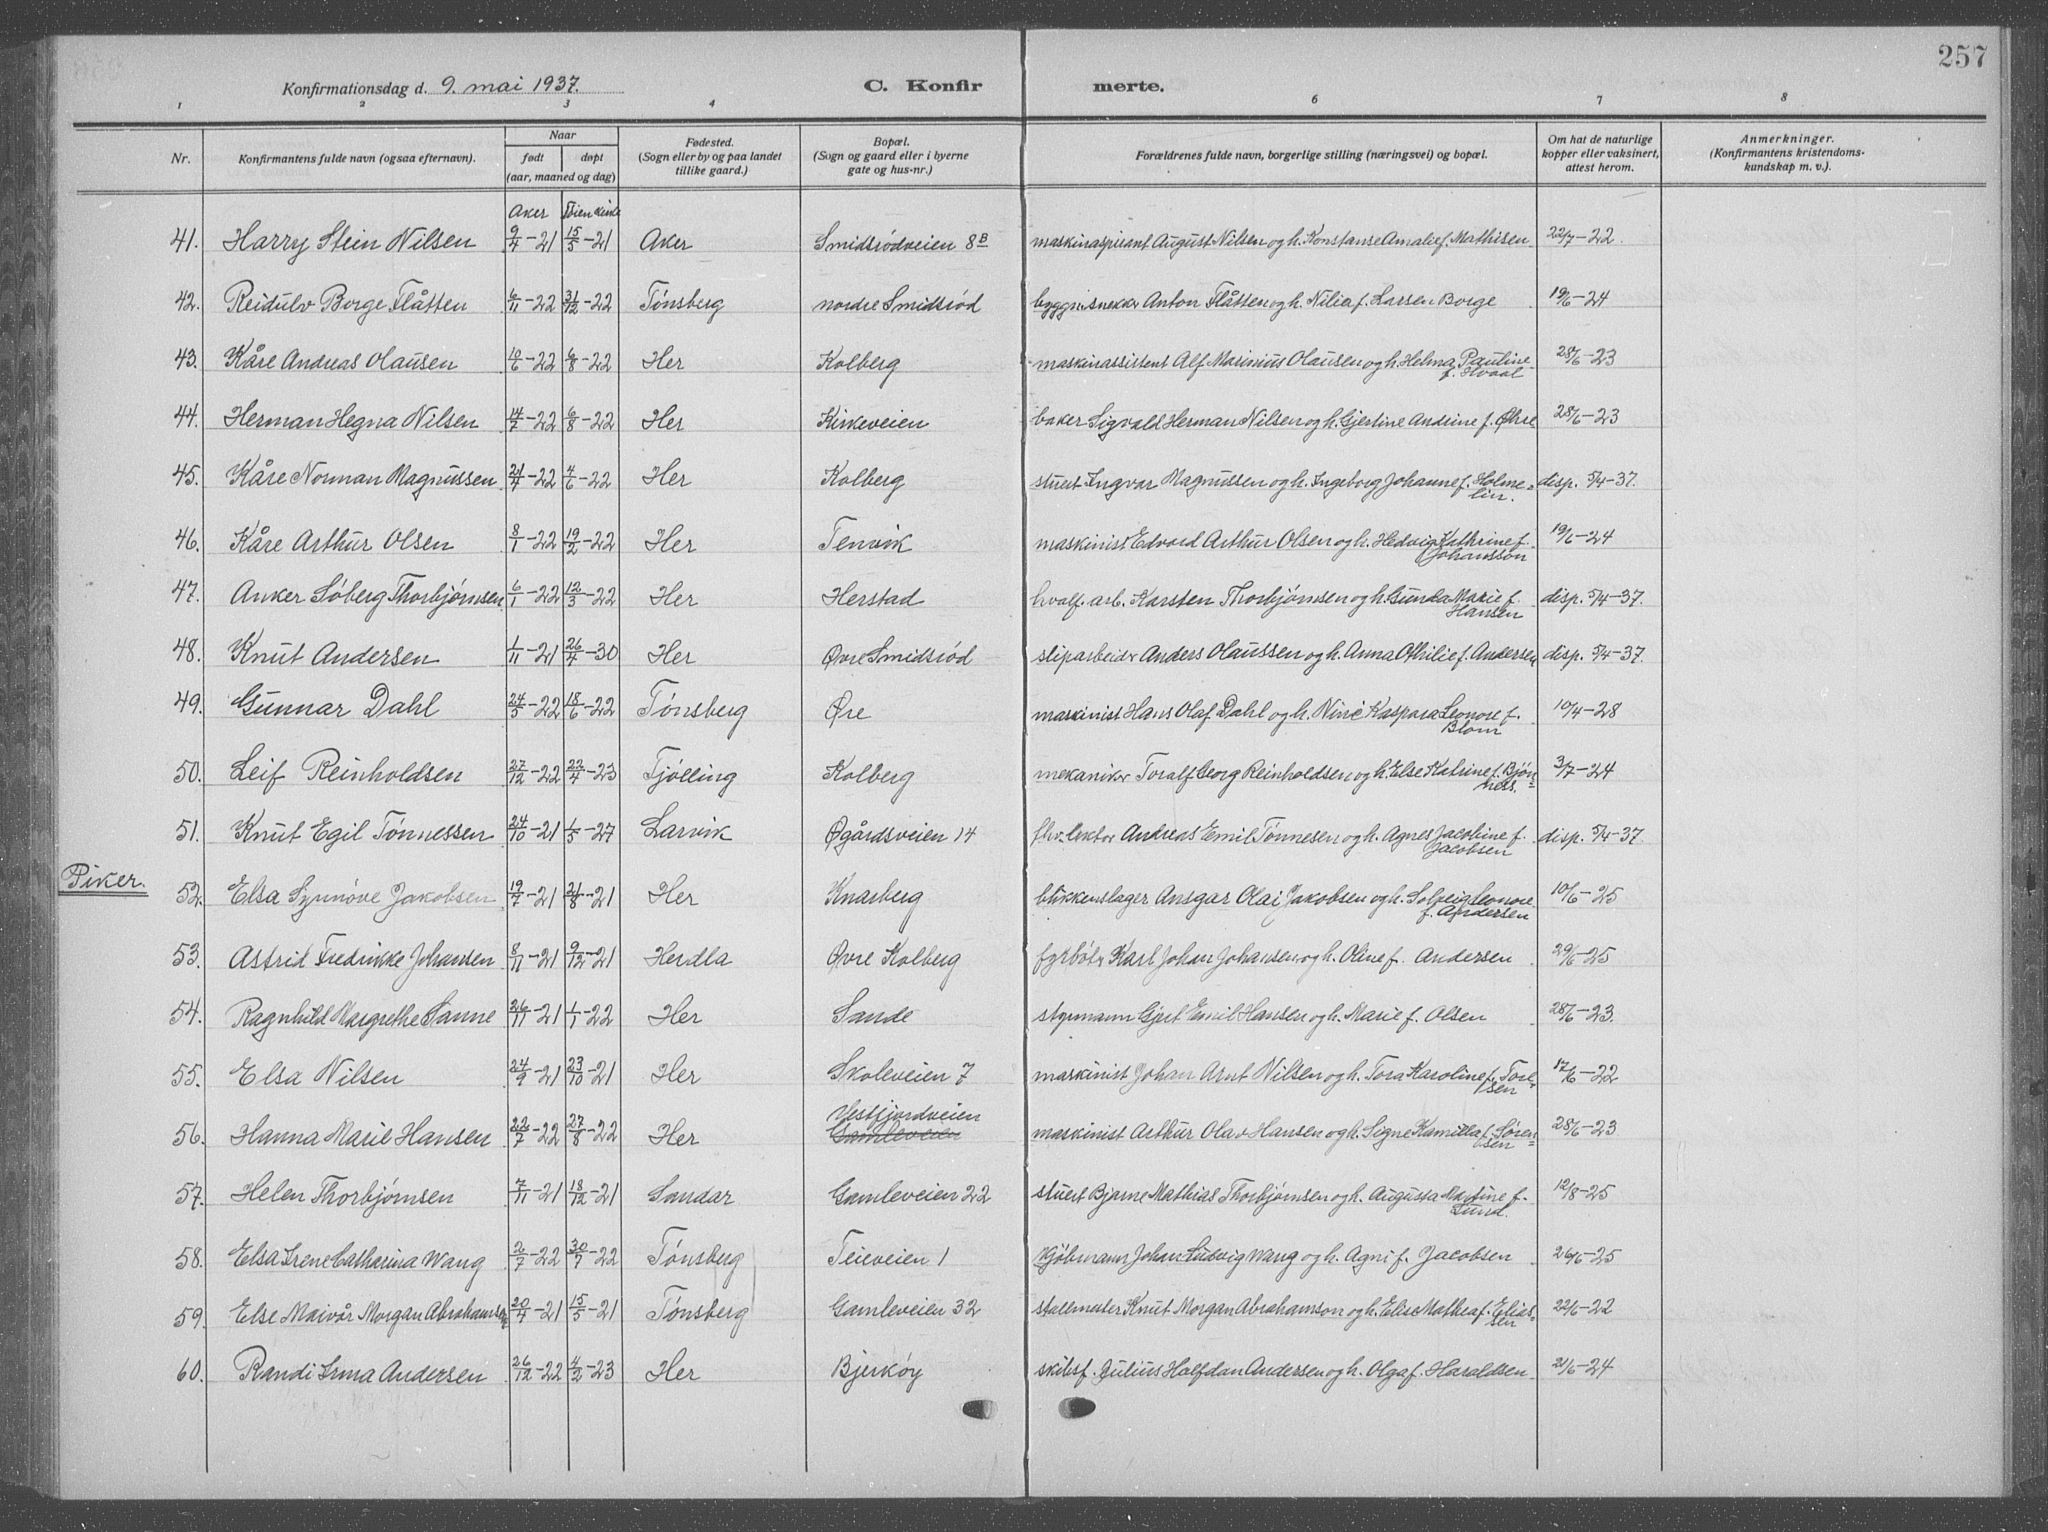 257
Konfirmationsdag d. 9. mai 1937. C. Konfir merte.
1 2 3 4 5 6 7 8
Nr. Konfirmantens fulde navn (ogsaa efternavn). Naar født døpt (aar, maaned og dag) Fødested. (Sogn eller by og paa landet tillike gaard.) Bopæl. (Sogn og gaard eller i byerne gate og hus-nr.) Forældrenes fulde navn, borgerlige stilling (næringsvei) og bopæl. Om hat de naturlige kopper eller vaksinert, attest herom. Anmerkninger. (Konfirmantens kristendoms-kundskap m. v.).
Aker Tøien kirke
41. Harry Stein Nilsen 9/4-21 15/5-21 Aker Smidsrødveien 8B maskinaspirant August Nilsen og h. Konstanse Amalie f. Mathisen 22/7-22.
42. Reidulv Borge Flåtten 6/11-22 31/12-22 Tønsberg nordre Smidsrød byggn.snekker Anton Flåtten og h. Nilia f. Larsen Borge 19/6-24
43. Kåre Andreas Olausen 10/6-22 6/8-22 Her Kolberg maskinassistent Alf Marinius Olausen og h. Helma Pauline f. Hvaal 28/6-23
44. Herman Hegna Nilsen 14/7-22 6/8-22 Her Kirkeveien baker Sigvald Herman Nilsen og h. Gjertine Andrine f. Øhre 28/6-23
45. Kåre Norman Magnussen 21/4-22 4/6-22 Her Kolberg stuert Ingvar Magnussen og h. Ingeborg Johanne f. Holme-lin. disp. 5/4-37.
46. Kåre Arthur Olsen 8/1-22 19/2-22 Her Tenvik maskinist Edvard Arthur Olsen og h. Hedvig Kathrine f. Johansson 19/6-24
47. Anker Søberg Thorbjørnsen 6/1-22 12/3-22 Her Herstad hvalf. arb. Karsten Thorbjørnsen og h. Gunda Marie f. Hansen disp. 5/4-37.
48. Knut Andersen 1/11-21 26/4-30 Her Øvre Smidsrød sliparbeider Anders Olaussen og h. Anna Othilie f. Andersen disp. 5/4-37.
49. Gunnar Dahl 24/5-22 18/6-22 Tønsberg Øre maskinist Hans Olaf Dahl og h. Nine Kaspara Leonore f. Blom 10/4-28
50. Leif Reinholdsen 27/12-22 22/4-23 Tjølling Kolberg mekaniker Toralf Georg Reinholdsen og h. Else Katrine f. Bjønness. 3/7-24
51. Knut Egil Tønnessen 24/10-21 1/5-27 Larvik Øgårdsveien 14 fhv. lektor Andreas Emil Tønnesen og h. Agnes Jacobine f. Jacobsen disp. 5/4-37.
Piker.
52. Elsa Synnøve Jakobsen 19/7-21 21/8-21 Her Knarberg blikkenslager Ansgar Olai Jakobsen og h. Solveig Leonore f. Andersen 10/6-25
53. Astrid Fredrikke Johansen 8/11-21 9/12-21 Herdla Øvre Kolberg fyrbøter Karl Johan Johansen og h. Oline f. Andersen 29/6-25
54. Ragnhild Margrethe Sanne 26/11-21 1/1-22 Her Sande styrmann Gjert Emil Hansen og h. Marie f. Olsen 28/6-23.
55. Elsa Nilsen 24/9-21 23/10-21 Her Skoleveien 7 maskinist Johan Arnt Nilsen og h. Tora Karoline f. Torersen 17/6-22
56. Hanna Marie Hansen 22/7-22 27/8-22 Her Vestfjordveien Gamleveien maskinist Arthur Olav Hansen og h. Signe Kamilla f. Søren-sen 28/6-23
57. Helen Thorbjørnsen 7/11-21 18/12-21 Sandar Gamleveien 22 stuert Bjarne Mathias Thorbjørnsen og h. Augusta Martine f. Lund. 12/8-25
58. Elsa Irene Catharina Wang 2/7-22 30/7-22 Tønsberg Teieveien 1 Kjøbmann Johan Ludvig Wang og h. Agni f. Jacobsen 26/6-25
59. Else Maivår Morgan Abrahamsen 20/4-21 15/5-21 Tønsberg Gamleveien 32 stallmester Knut Morgan Abrahamson og h. Elise Mathea f. Elias-sen 22/6-22
60. Randi Irma Andersen 26/12-22 4/2-23 Her Bjerkøy skibsf. Julius Halfdan Andersen og h. Olga f. Haraldsen 21/6-24